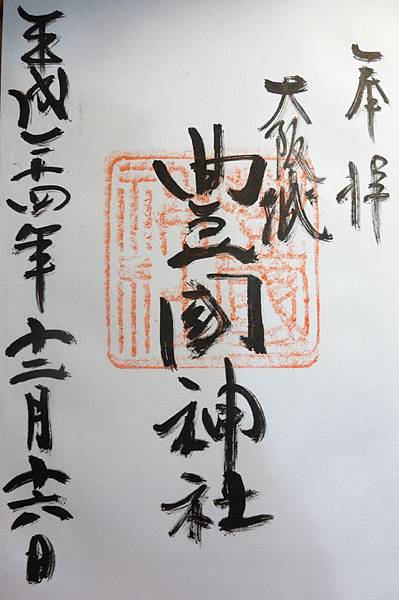 奉拝
大阪城
豊國神社
平成二十四年十二月十六日